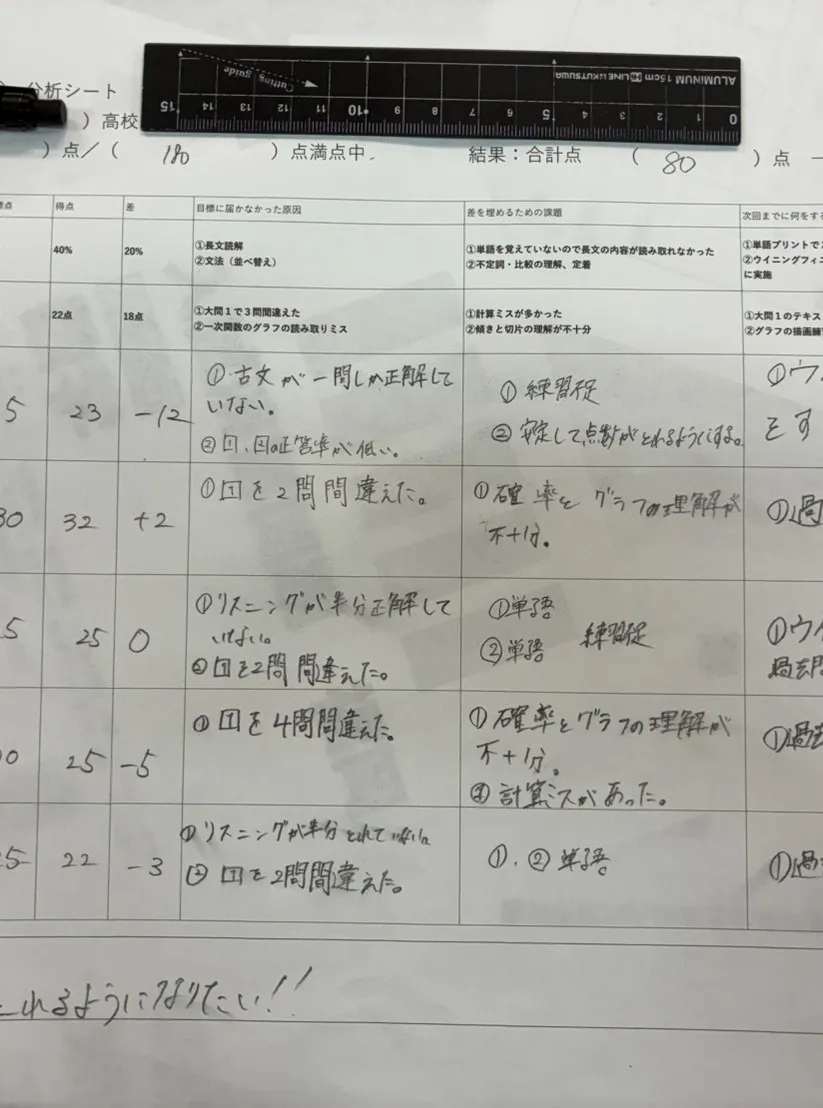 ALUMINIUM 15cm LINEX KUTSUWA
Cutting guide
15 14 13 12 11 10 9 8 7 6 5 4 3 2 1 0
分析シート
)高校
)点／( 180 )点満点中. 結果：合計点 ( 80 )点
標点 得点 差 目標に届かなかった原因 差を埋めるための課題 次回までに何をする
40% 20% ①長文読解 ①単語を覚えていないので長文の内容が読み取れなかった ①単語プリントで
②文法（並べ替え） ②不定詞・比較の理解、定着 ②ウイニングフィニ
に実施
22点 18点 ①大問1で3問間違えた ①計算ミスが多かった ①大問1のテキス
②一次関数のグラフの読み取りミス ②傾きと切片の理解が不十分 ②グラフの描画練
5 23 -12 ①古文が一問しか正解して ①練習促 ①ウ
いない。 をす
②の正答率が低い。 ②安定して点数がとれるようにする。
30 32 +2 ①を2問間違えた。 ①確率とグラフの理解が ①過
不十分。
5 25 0 ①リスニングが半分正解して ①単語 ①ウ
いない。 ②単語 練習促 過去問
②を2問間違えた。
0 25 -5 ①を4問間違えた。 ①確率とグラフの理解が ①過去
不十分。
計算ミスがあった。
25 22 -3 ①リスニングが半分とれていない。 ①.②単語 ①過
②を2問間違えた。
とれるようになりたい!!